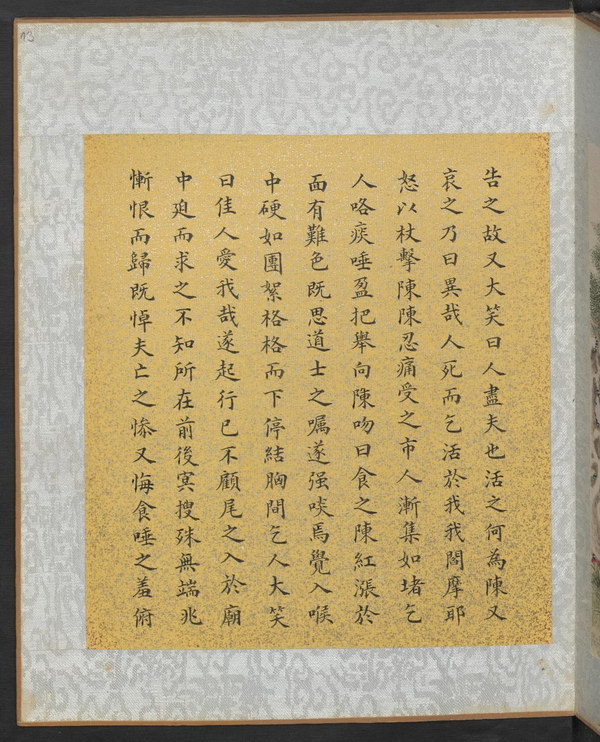 告之故又大笑曰人盡夫也活之何為陳又
哀之乃曰異哉人死而乞活於我我閻摩耶
怒以杖擊陳陳忍痛受之市人漸集如堵乞
人咯痰唾盈把舉向陳吻曰食之陳紅漲於
面有難色既思道士之囑遂强啖焉覺入喉
中硬如團絮格格而下停結胸間乞人大笑
曰佳人愛我哉遂起行已不顧尾之入於廟
中廹而求之不知所在前後冥搜殊無端兆
慚恨而歸既悼夫亡之慘又悔食唾之羞俯
13